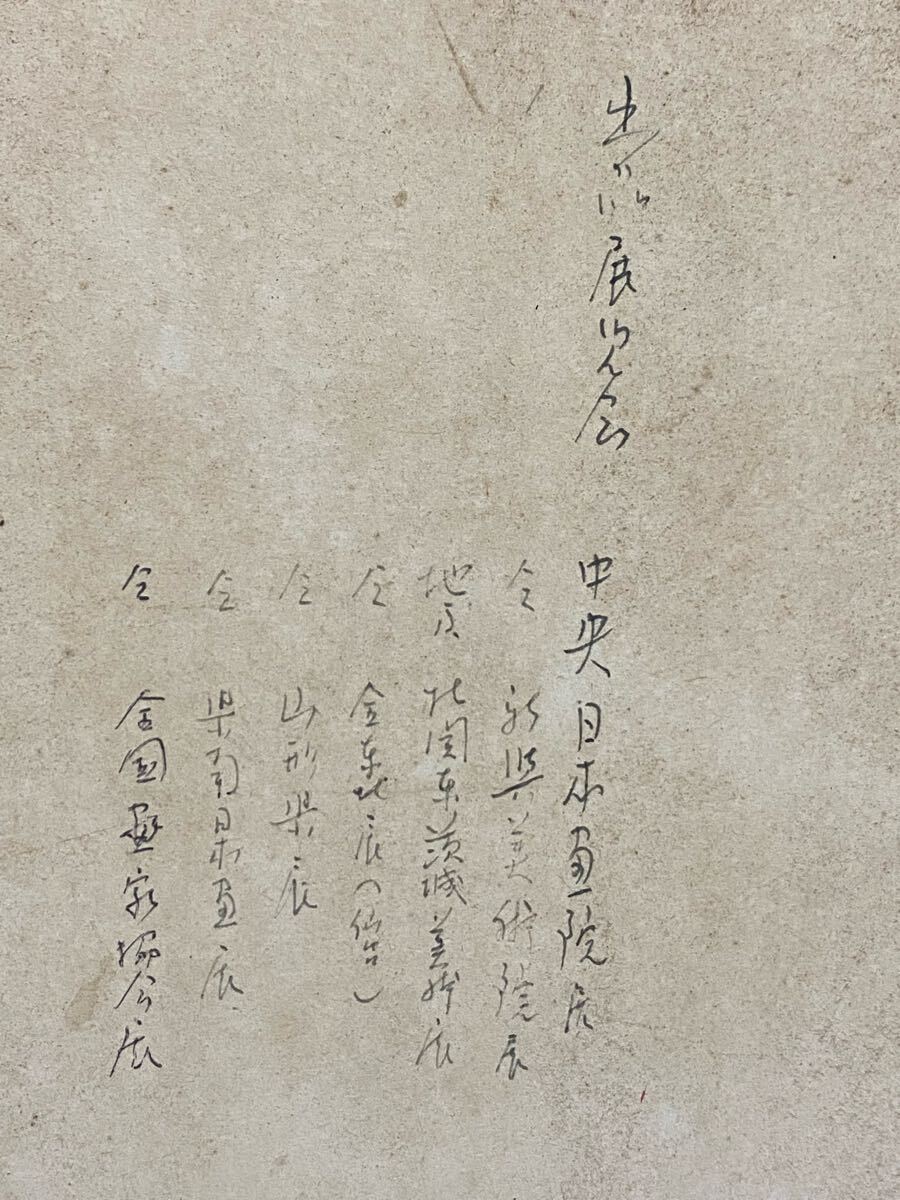 出品展覧会
中央日本画院展
仝 新興美術院展
北関東茨城美術展
仝 全東北展（仙台）
仝 山形県展
仝 県南日本画展
仝 全國畫家協会展